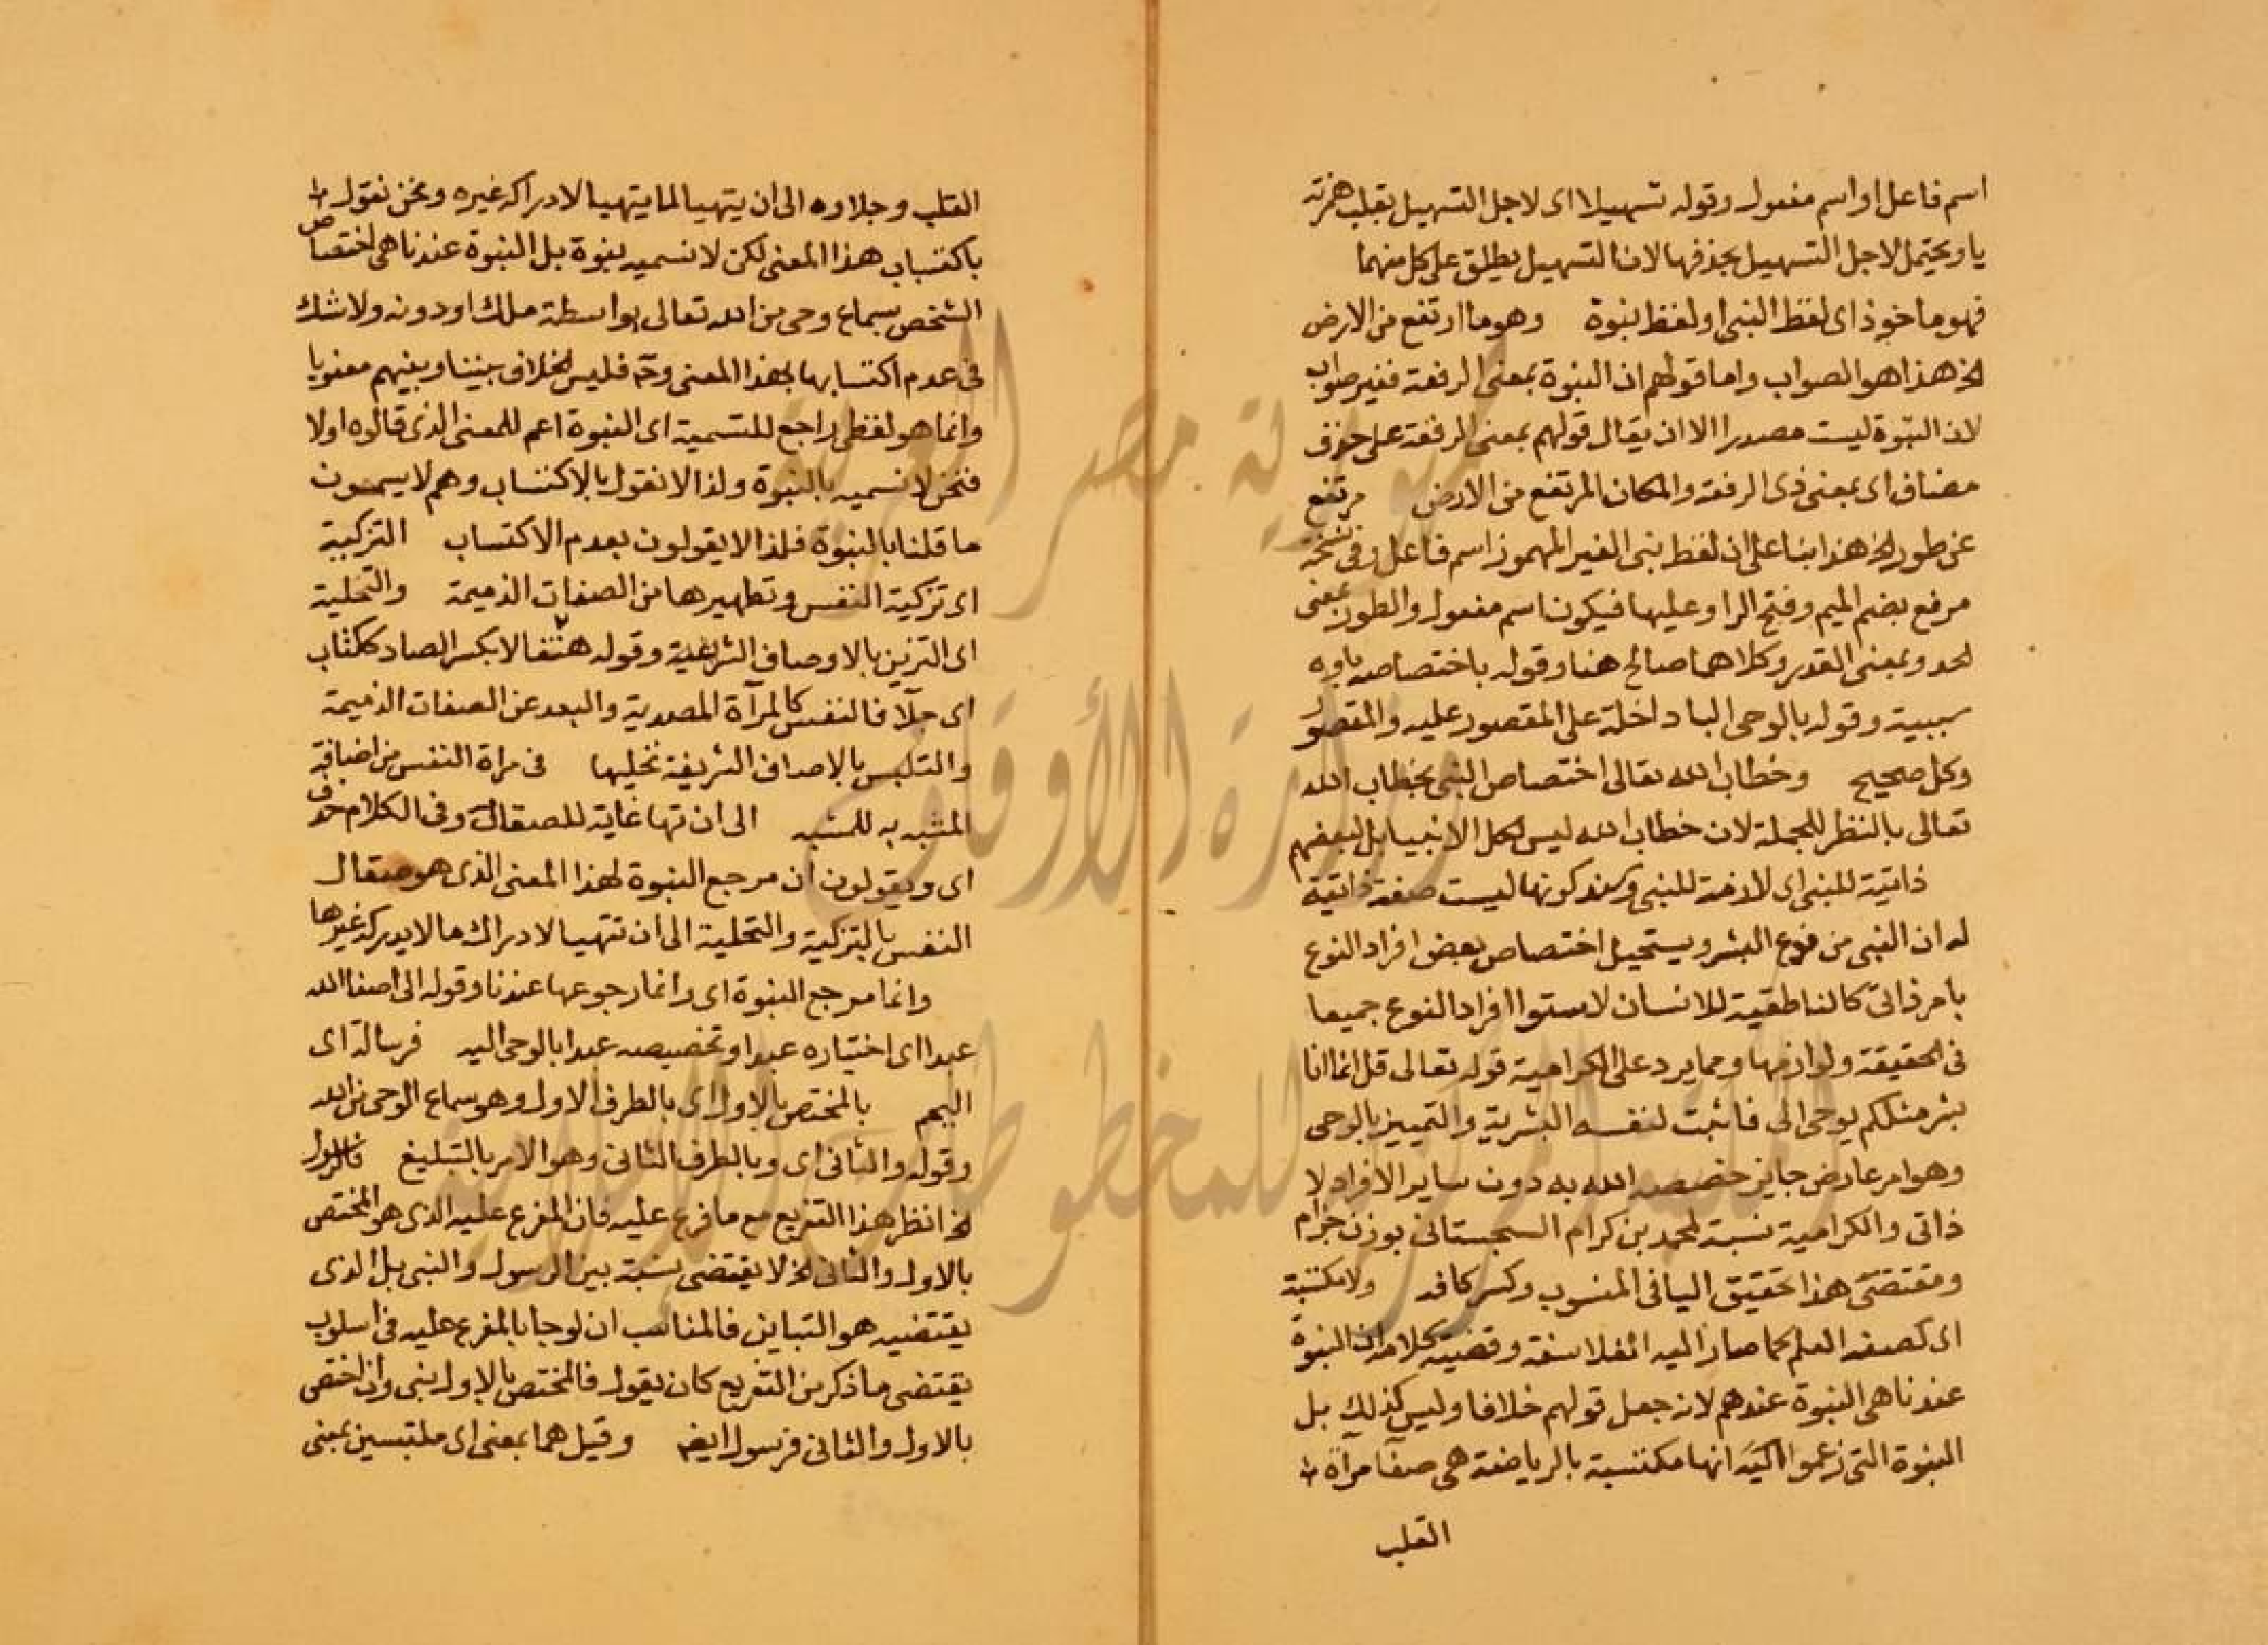 اسم فاعل او اسم مفعول وقوله تسهيلا اى لاجل التسهيل بقلب همزته
يا ويحتمل لاجل التسهيل بحذفها لان التسهيل يطلق على كل منهما
فهو ماخوذ اى لفظ النبى او لفظ نبوة وهو ما ارتفع من الارض
الخ هذا هو الصواب واما قولهم ان النبوة بمعنى الرفعة فغير صواب
لان النبوة ليست مصدرا الا ان يقال قولهم بمعنى الرفعة على حذف
مضاف اى بمعنى ذى الرفعة والمكان المرتفع من الارض مرتفع
عن طور الخ هذا بنا على ان لفظ نبى الغير المهموز اسم فاعل وفى نسخة
مرفع بضم الميم وفتح الرا وعليها فيكون اسم مفعول والطور بمعنى
الحد وبمعنى القدر وكلاهما صالح هنا وقوله باختصاصه باوه
سببية وقوله بالوحى البا داخلة على المقصور عليه والمقصور
وكل صحيح وخطاب الله تعالى اختصاص النبى بخطاب الله
تعالى بالنظر للجملة لان خطاب الله ليس لكل الانبيا بل لبعضهم
ذاتية للنبى اى لازمة للنبى وسند كونها ليست صفة ذاتية
له ان النبى من نوع البشر ويستحيل اختصاص بعض افراد النوع
بامر ذاتى كالناطقية للانسان لاستوا افراد النوع جميعا
فى الحقيقة ولوازمها ومما يرد على الكرامية قوله تعالى قل انما انا
بشر مثلكم يوحى الى فاثبت لنفسه البشرية والتمييز بالوحى
وهو امر عارض جايز خصيصه الله به دون ساير الافراد لا
ذاتى والكرامية نسبة لمحمد بن كرام السجستانى بوزن حزام
ومقتضى هذا تحقيق اليا فى المنسوب وكسر كافه ولا مكتسبة
اى كصفة العلم كما صار اليه الفلاسفة وقضية كلامه ان النبوة
عندنا هى النبوة عندهم لانه جعل قولهم خلافا وليس كذلك بل
النبوة التى زعموا انها مكتسبة بالرياضة هى صفا مرآة
القلب
القلب وجلاوه الى ان يتهيا لما يتهيا لادراكه غيره ونحن نقول
باكتساب هذا المعنى لكن لا نسميه نبوة بل النبوة عندنا هى اختصاص
الشخص بسماع وحى من الله تعالى بواسطة ملك او دونه ولا شك
فى عدم اكتسابها بهذا المعنى وح فليس الخلاف بيننا وبينهم معنويا
وانما هو لفظى راجع للتسمية اى النبوة اعم للمعنى الذى قالوه اولا
فنحن لا نسميه بالنبوة ولذا لا نقول بالاكتساب وهم لا يسمون
ما قلنا بالنبوة فلذا لا يقولون بعدم الاكتساب التزكية
اى تزكية النفس وتطهيرها من الصفات الذميمة والتحلية
اى التزين بالاوصاف الشريفة وقوله صقالا بكسر الصاد ككتاب
اى جلآ فالنفس كالمرآة المصدية والبعد عن الصفات الذميمة
والتلبس بالاوصاف الشريفة تجليها فى مراة النفس من اضافة
المشبه به للمشبه الى ان تها غاية للصقال وفى الكلام حذف
اى ويقولون ان مرجع النبوة لهذا المعنى الذى هو صقال
النفس بالتزكية والتحلية الى ان تتهيا لادراك ما لا يدركه غيرها
وانما مرجع النبوة اى وانما رجوعها عندنا وقوله الى اصفا الله
عبدا اى اختياره عبدا وتخصيصه عبدا بالوحى اليه فرسالة اى
اليهم بالمختص بالاول اى بالطرف الاول وهو سماع الوحى من الله
وقوله والثانى اى وبالطرف الثانى وهو الامر بالتبليغ فالرسول
الخ انظر هذا التفريع مع ما فرع عليه فان المفرع عليه الذى هو المختص
بالاول والثانى الخ لا يقتضى نسبة بين الرسول والنبى بل الذى
يقتضيه هو التباين فالمناسب ان لو جا بالمفرع عليه فى اسلوب
يقتضى ما ذكر من التفريع كان يقول فالمختص بالاول نبى وان اختص
بالاول والثانى فرسول ايضا وقيل هما بمعنى اى ملتبسين بمعنى
جمهورية مصر العربية
وزارة الأوقاف
المكتبة المركزية للمخطوطات الإسلامية